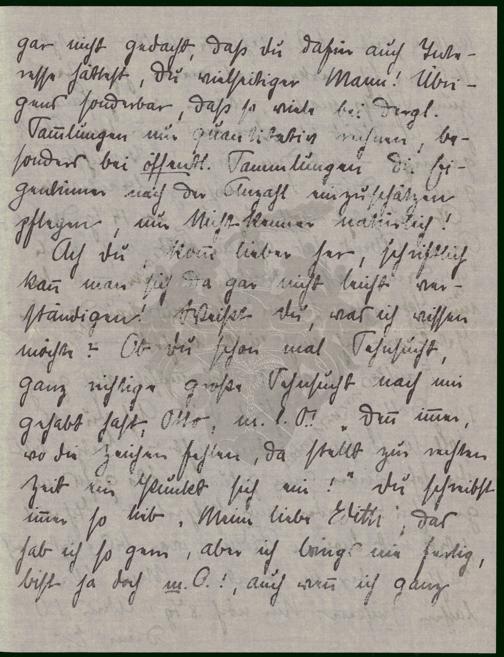 gar nicht gedacht, daß du dafür auch Inte-
resse hättest, du vielseitiger Mann! Übri-
gens sonderbar, daß so viele bei dergl.
Sam̅lungen nur quantitativ rechnen, be-
sonders bei öffentl. Sammlungen die
nach der Anzahl einzuschätzen
pflegen, nur Nicht-Kenner natürlich!
Ach du, kom̅ lieber her, schriftlich
kan̅ man sich da gar nicht leicht ver-
ständigen! Weißt du, was ich wissen
möchte? Ob du schon mal Sehnsucht,
ganz richtige große Sehnsucht nach mir
gehabt hast, Otto, m. l. O.! „Den̅ im̅er,
wo die Zeichen fehlen, da stellt zur rechten
Zeit ein Punkt sich ein!" Du schreibst
im̅er so lieb „Meine liebe Edith", das
hab ich so gern, aber ich bring's nie fertig,
bist ja doch m. O.!, auch wen̅ ich ganz